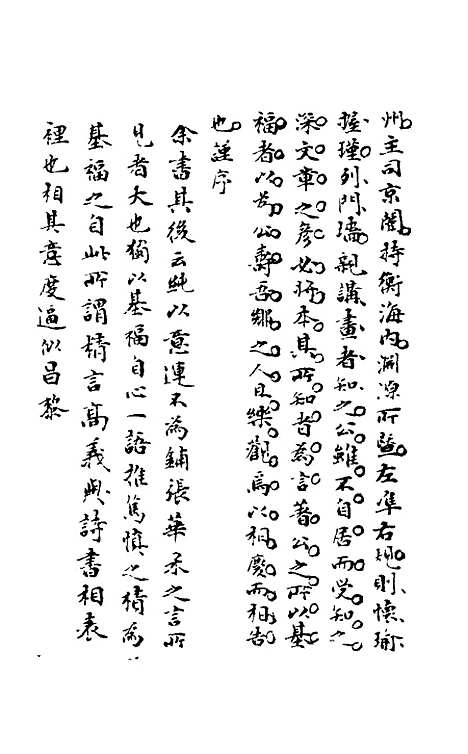 州主司京闈持衡海内淵源所暨左準右規則懷瑜
握瑾列門墻親講畫者知之公雖不自居而受知
深文章之彥必歸本其所知者為言著公之所以基
福者以為公壽吾鄉之人且樂觀焉以相慶而相告
也謹序
余書其後云純以意運不為鋪張華柔之言所
見者大也獨以基福自心一語推篤慎之精為
基福之自此所謂精言高義與詩書相表
裡也相其意度逼似昌黎